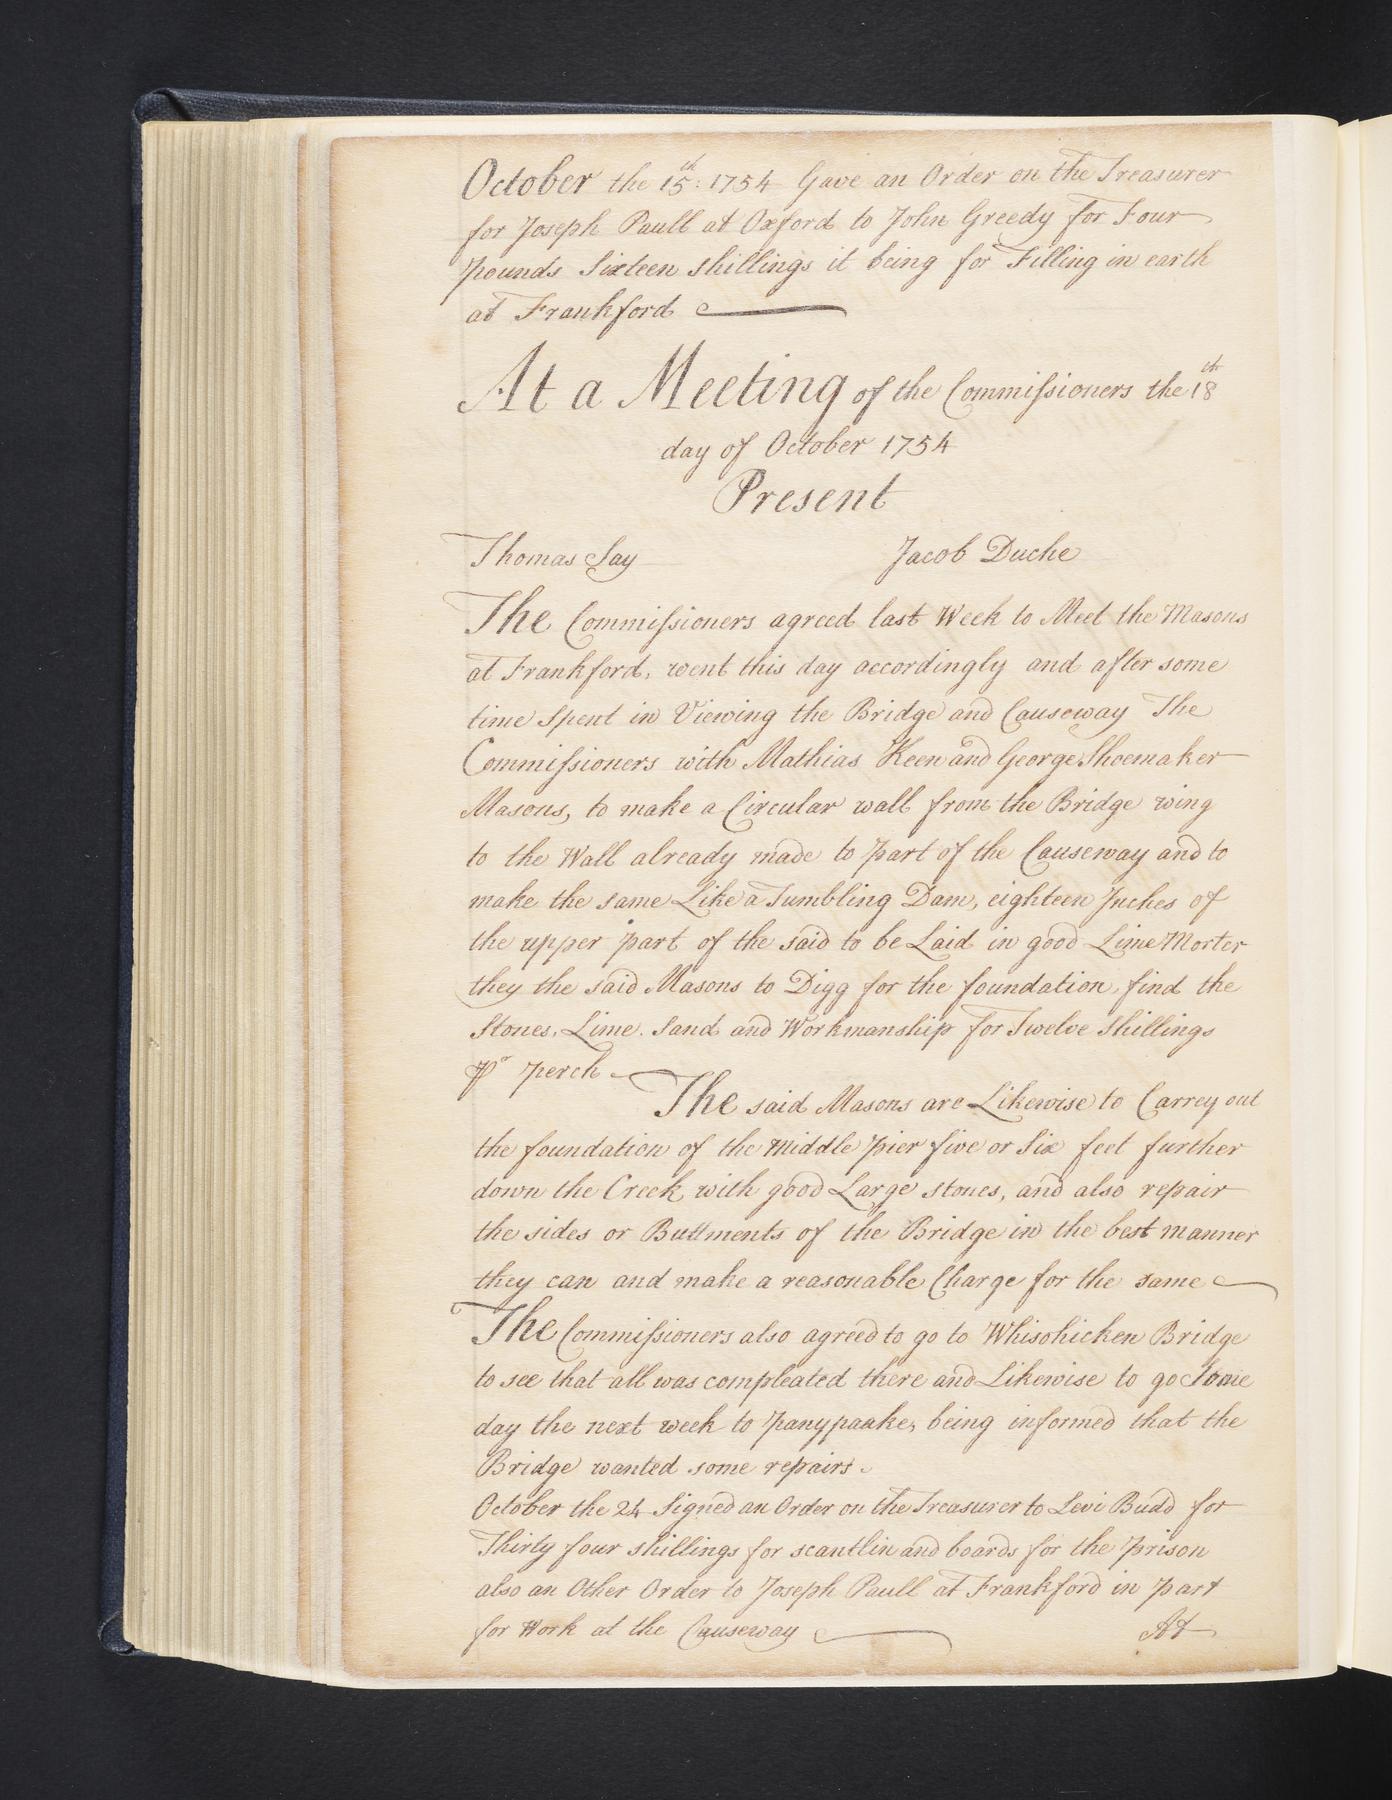 October the 15th: 1754 Gave an Order on the Treasurer
for Joseph Paull at Oxford to John Greedy for Four
pounds Sixteen shillings it being for Filling in earth
at Frankford
At a Meeting of the Commiſsioners the 18th
day of October 1754
Present
Thomas Say Jacob Duche
The Commiſsioners agreed last Week to Meet the Masons
at Frankford, went this day accordingly and after some
time Spent in Viewing the Bridge and Causeway The
Commiſsioners with Mathias Keen and George Shoemaker
Masons, to make a Circular wall from the Bridge wing
to the Wall already made to part of the Causeway and to
make the same Like a Tumbling Dam, eighteen Inches of
the upper part of the said to be Laid in good Lime Morter
they the said Masons to Digg for the foundation, find the
Stones, Lime. Sand and Workmanship for Twelve Shillings
pr perch
The said Masons are Likewise to Carrey out
the foundation of the Middle pier five or Six feet further
down the Creek with good Large stones, and also repair
the sides or Buttments of the Bridge in the best manner
they can and make a reasonable Charge for the same
The Commiſsioners also agreed to go to Whisohicken Bridge
to see that all was compleated there and Likewise to go Some
day the next week to panypaake, being informed that the
Bridge wanted some repairs.
October the 24 Signed an Order on the Treasurer to Levi Budd for
Thirty four shillings for scantlin and boards for the prison
also an Other Order to Joseph Paull at Frankford in part
for Work at the Causeway At